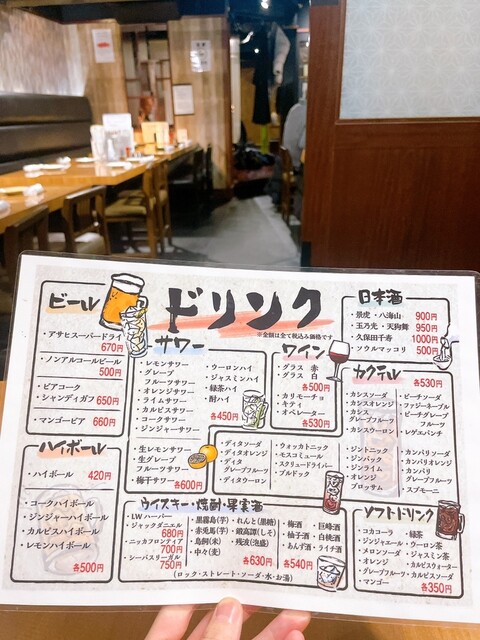 ドリンク
※金額は全て税込み価格です
ビール
・アサヒスーパードライ
670円
・ノンアルコールビール
500円
・ピアコーク
・シャンディガフ 650円
・マンゴービア 660円
ハイボール
・ハイボール 420円
・コークハイボール
・ジンジャーハイボール
・カルピスハイボール
・レモンハイボール
各500円
サワー
・レモンサワー
・グレープ
フルーツサワー
・オレンジサワー
・ライムサワー
・カルピスサワー
・コークサワー
・ジンジャーサワー
・ウーロンハイ
・ジャスミンハイ
・緑茶ハイ
・酎ハイ
各450円
・生レモンサワー
・生グレープ
フルーツサワー
・梅干サワー 各600円
ワイン
・グラス 赤
・グラス 白
各500円
・カリモーチョ
・キティ
・オペレーター
各530円
日本酒
・景虎・八海山 900円
・玉乃光・天狗舞 950円
・久保田千寿 1000円
・ソウルマッコリ 500円
カクテル
各530円
・カシスソーダ
・カシスオレンジ
・カシス
グレープフルーツ
・カシスウーロン
・ピーチソーダ
・ファジーネーブル
・ピーチグレープ
フルーツ
・レゲエパンチ
・ジントニック
・ジンバック
・ジンライム
・オレンジ
ブロッサム
・カンパリソーダ
・カンパリオレンジ
・カンパリ
グレープフルーツ
・スプモーニ
・ディタソーダ
・ディタオレンジ
・ディタ
グレープフルーツ
・ディタウーロン
・ウォッカトニック
・モスコミュール
・スクリュードライバー
・ブルドック
ウイスキー・焼酎・果実酒
・I.W ハーパー
・ジャックダニエル
680円
・ニッカフロンティア
700円
・シーバスリーガル
750円
・黒霧島(芋)
・赤兎馬(芋)
・島飼(米)
・中々(麦)
・れんと(黒糖)
・鍛高譚(しそ)
・残波(泡盛)
各630円
(ロック・ストレート・ソーダ・水・お湯)
・梅酒
・柚子酒
・あんず酒
・巨峰酒
・白桃酒
・ライチ酒
各540円
ソフトドリンク
・コカコーラ
・ジンジャエール
・メロンソーダ
・オレンジ
・グレープフルーツ
・マンゴー
・緑茶
・ウーロン茶
・ジャスミン茶
・カルピスウォーター
・カルピスソーダ
各350円